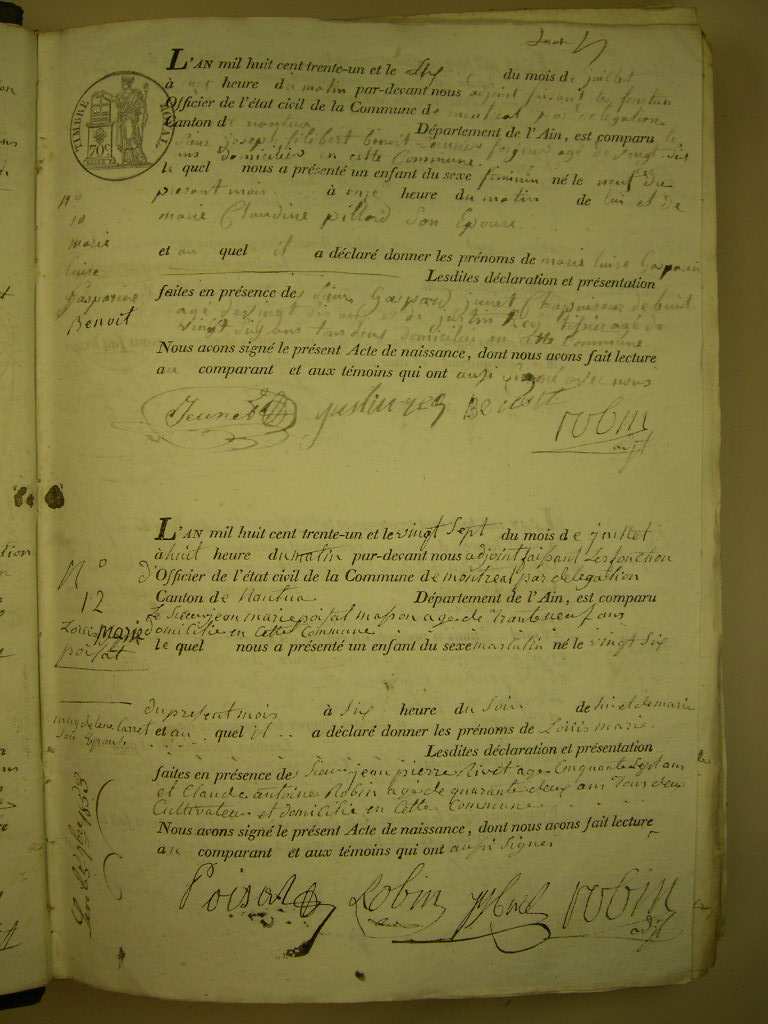 L'AN mil huit cent trente-un et le dix du mois de juillet
à onze heure du matin par-devant nous adjoint faisant les fonction
Officier de l'état civil de la Commune de montreal par delegation
Canton de nantua Département de l'Ain, est comparu
joseph filibert benoit age de vingt six
ans domicilié en cette Commune
le quel nous a présenté un enfant du sexe feminin né le neuf du
present mois à onze heure du matin de lui et de
marie Claudine pillard Son Epouse
et au quel il a déclaré donner les prénoms de marie Luise Gasparine
Lesdites déclaration et présentation
faites en présence de Gaspard
age de vingt ans et justin Rey age de
vingt six ans tous deux domicilies en cette Commune
Nous avons signé le présent Acte de naissance, dont nous avons fait lecture
au comparant et aux témoins qui ont aussi signé avec nous
Benoit robin
adjt
TIMBRE ROYAL
70c
N°
10
marie
luise
Gasparine
Benoit
L'AN mil huit cent trente-un et le vingt Sept du mois de juillet
à huit heure du matin par-devant nous adjoint faisant Les fonction
d'Officier de l'état civil de la Commune de montreal par delegation
Canton de Nantua Département de l'Ain, est comparu
Le Sieur jean marie poisat masson age de trante neuf ans
domicilié en Cette Commune
le quel nous a présenté un enfant du sexe masculin né le vingt Six
du present mois à Six heure du Soir de lui et de marie
magdelene Carret
Son Epouse et au quel il a déclaré donner les prénoms de Louis marie
Lesdites déclaration et présentation
faites en présence de Sieur jean pierre Rivet age Cinquante Sept ans
et Claude antoine Robin age de quarante deux ans Tous deux
Cultivateur et domicilié en Cette Commune
Nous avons signé le présent Acte de naissance, dont nous avons fait lecture
au comparant et aux témoins qui ont aussi Signer
Poisat Robin robin
adjt
N°
12
Louis Marie
poisat